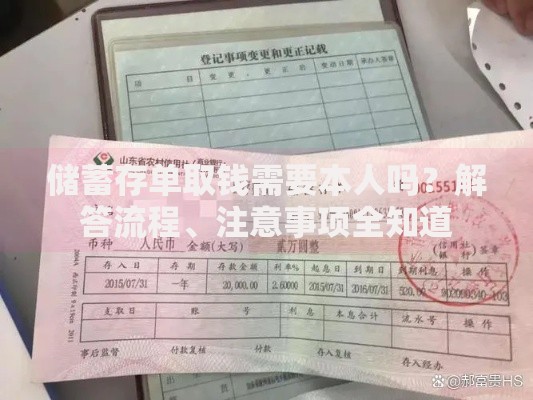 登记事项变更和更正记载
项 目 变 更 、 更 正 前 变动日期 承办人签章
山东省农村信用社(商业银行)
储蓄存单取钱需要本人吗?解
答流程、注意事项全知道
币种 人民币 金额(大写) 贰万圆整
(信用社
银行)
存 入 日 存 期 存款金额 利率% 起 息 日 到 期 日 到期利息 操 作
2015/07/31 一年 20,000.00 2.60000 2015/07/31 2016/07/31 520.00 902090340-103
支 取 日 账 号 利 息 本 息 合 计 流 水 号 操 作
事后监督 付款复核 付款经办 存入复核 存入经办
@郝富贵HS